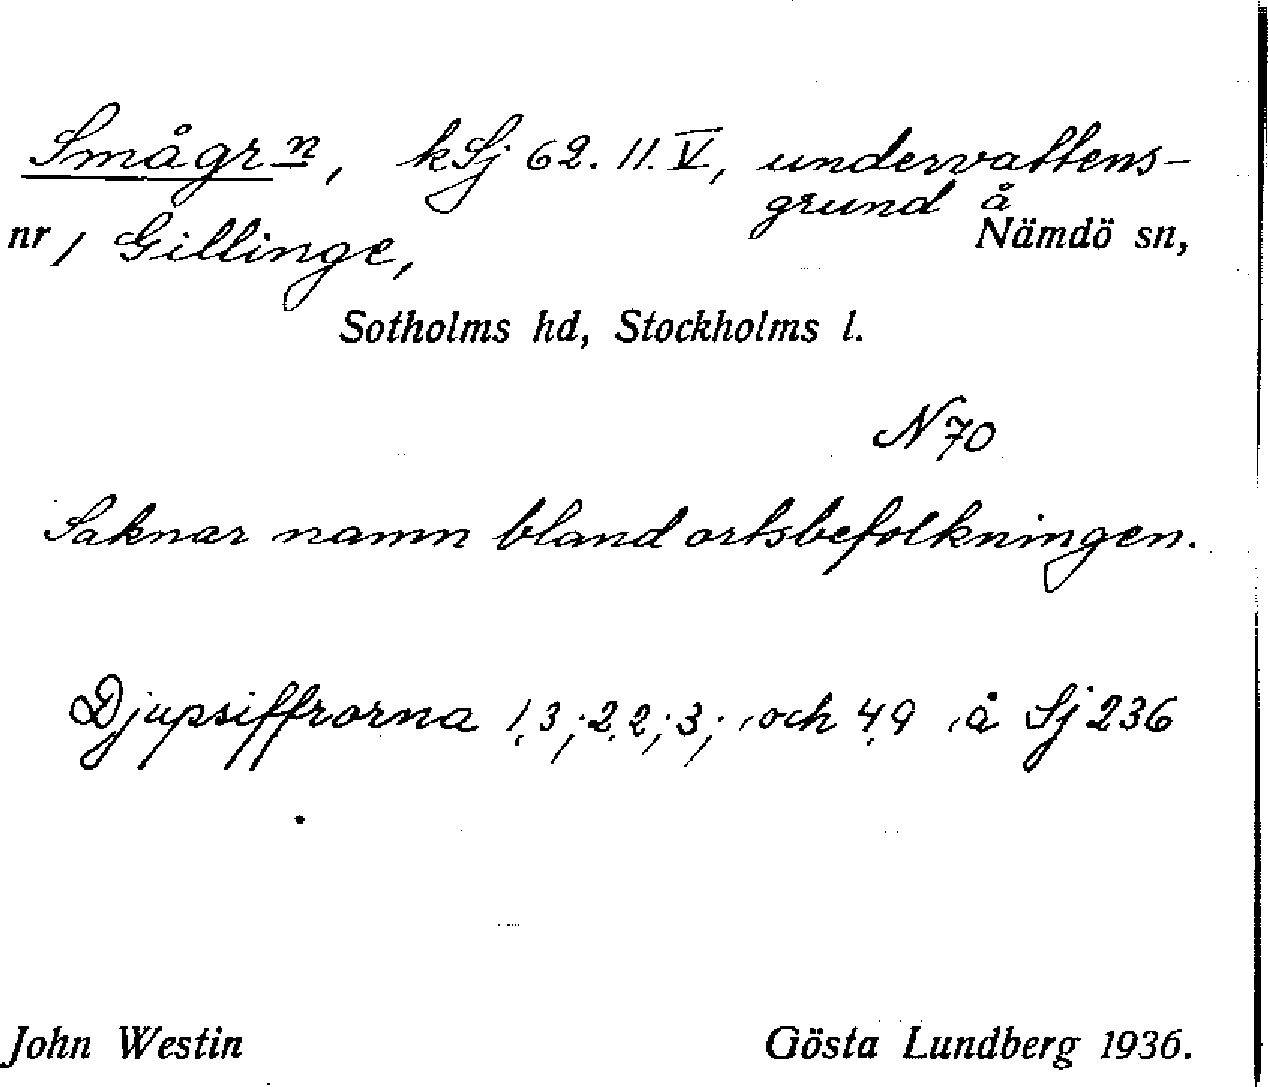 Smågrn, kSj 62. 11. V, undervattens-
grund å
nr 1 Gillinge, Nämdö sn,
Sotholms hd, Stockholms l.
N 70
Saknar namn bland ortsbefolkningen.
Djupsiffrorna 1,3; 2,2; 3; och 4,9 å Sj 236
John Westin Gösta Lundberg 1936.